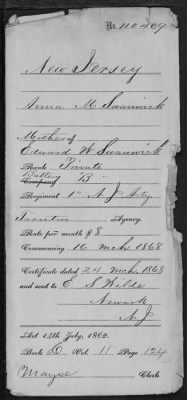 No. 110404
New Jersey
Anna M Swanwick
Mother of
Edward W Swanwick
Rank Private
Battery
Company B
Regiment 1st N J Arty
Trenton Agency
Rate per month $ 8
Commencing 16 Mch 1868
Certificate dated 24 Mch 1868
and sent to E S Wilde
Newark
N J
Act 14th July, 1862.
Book D Vol. 11 Page 124
Mayse Clerk